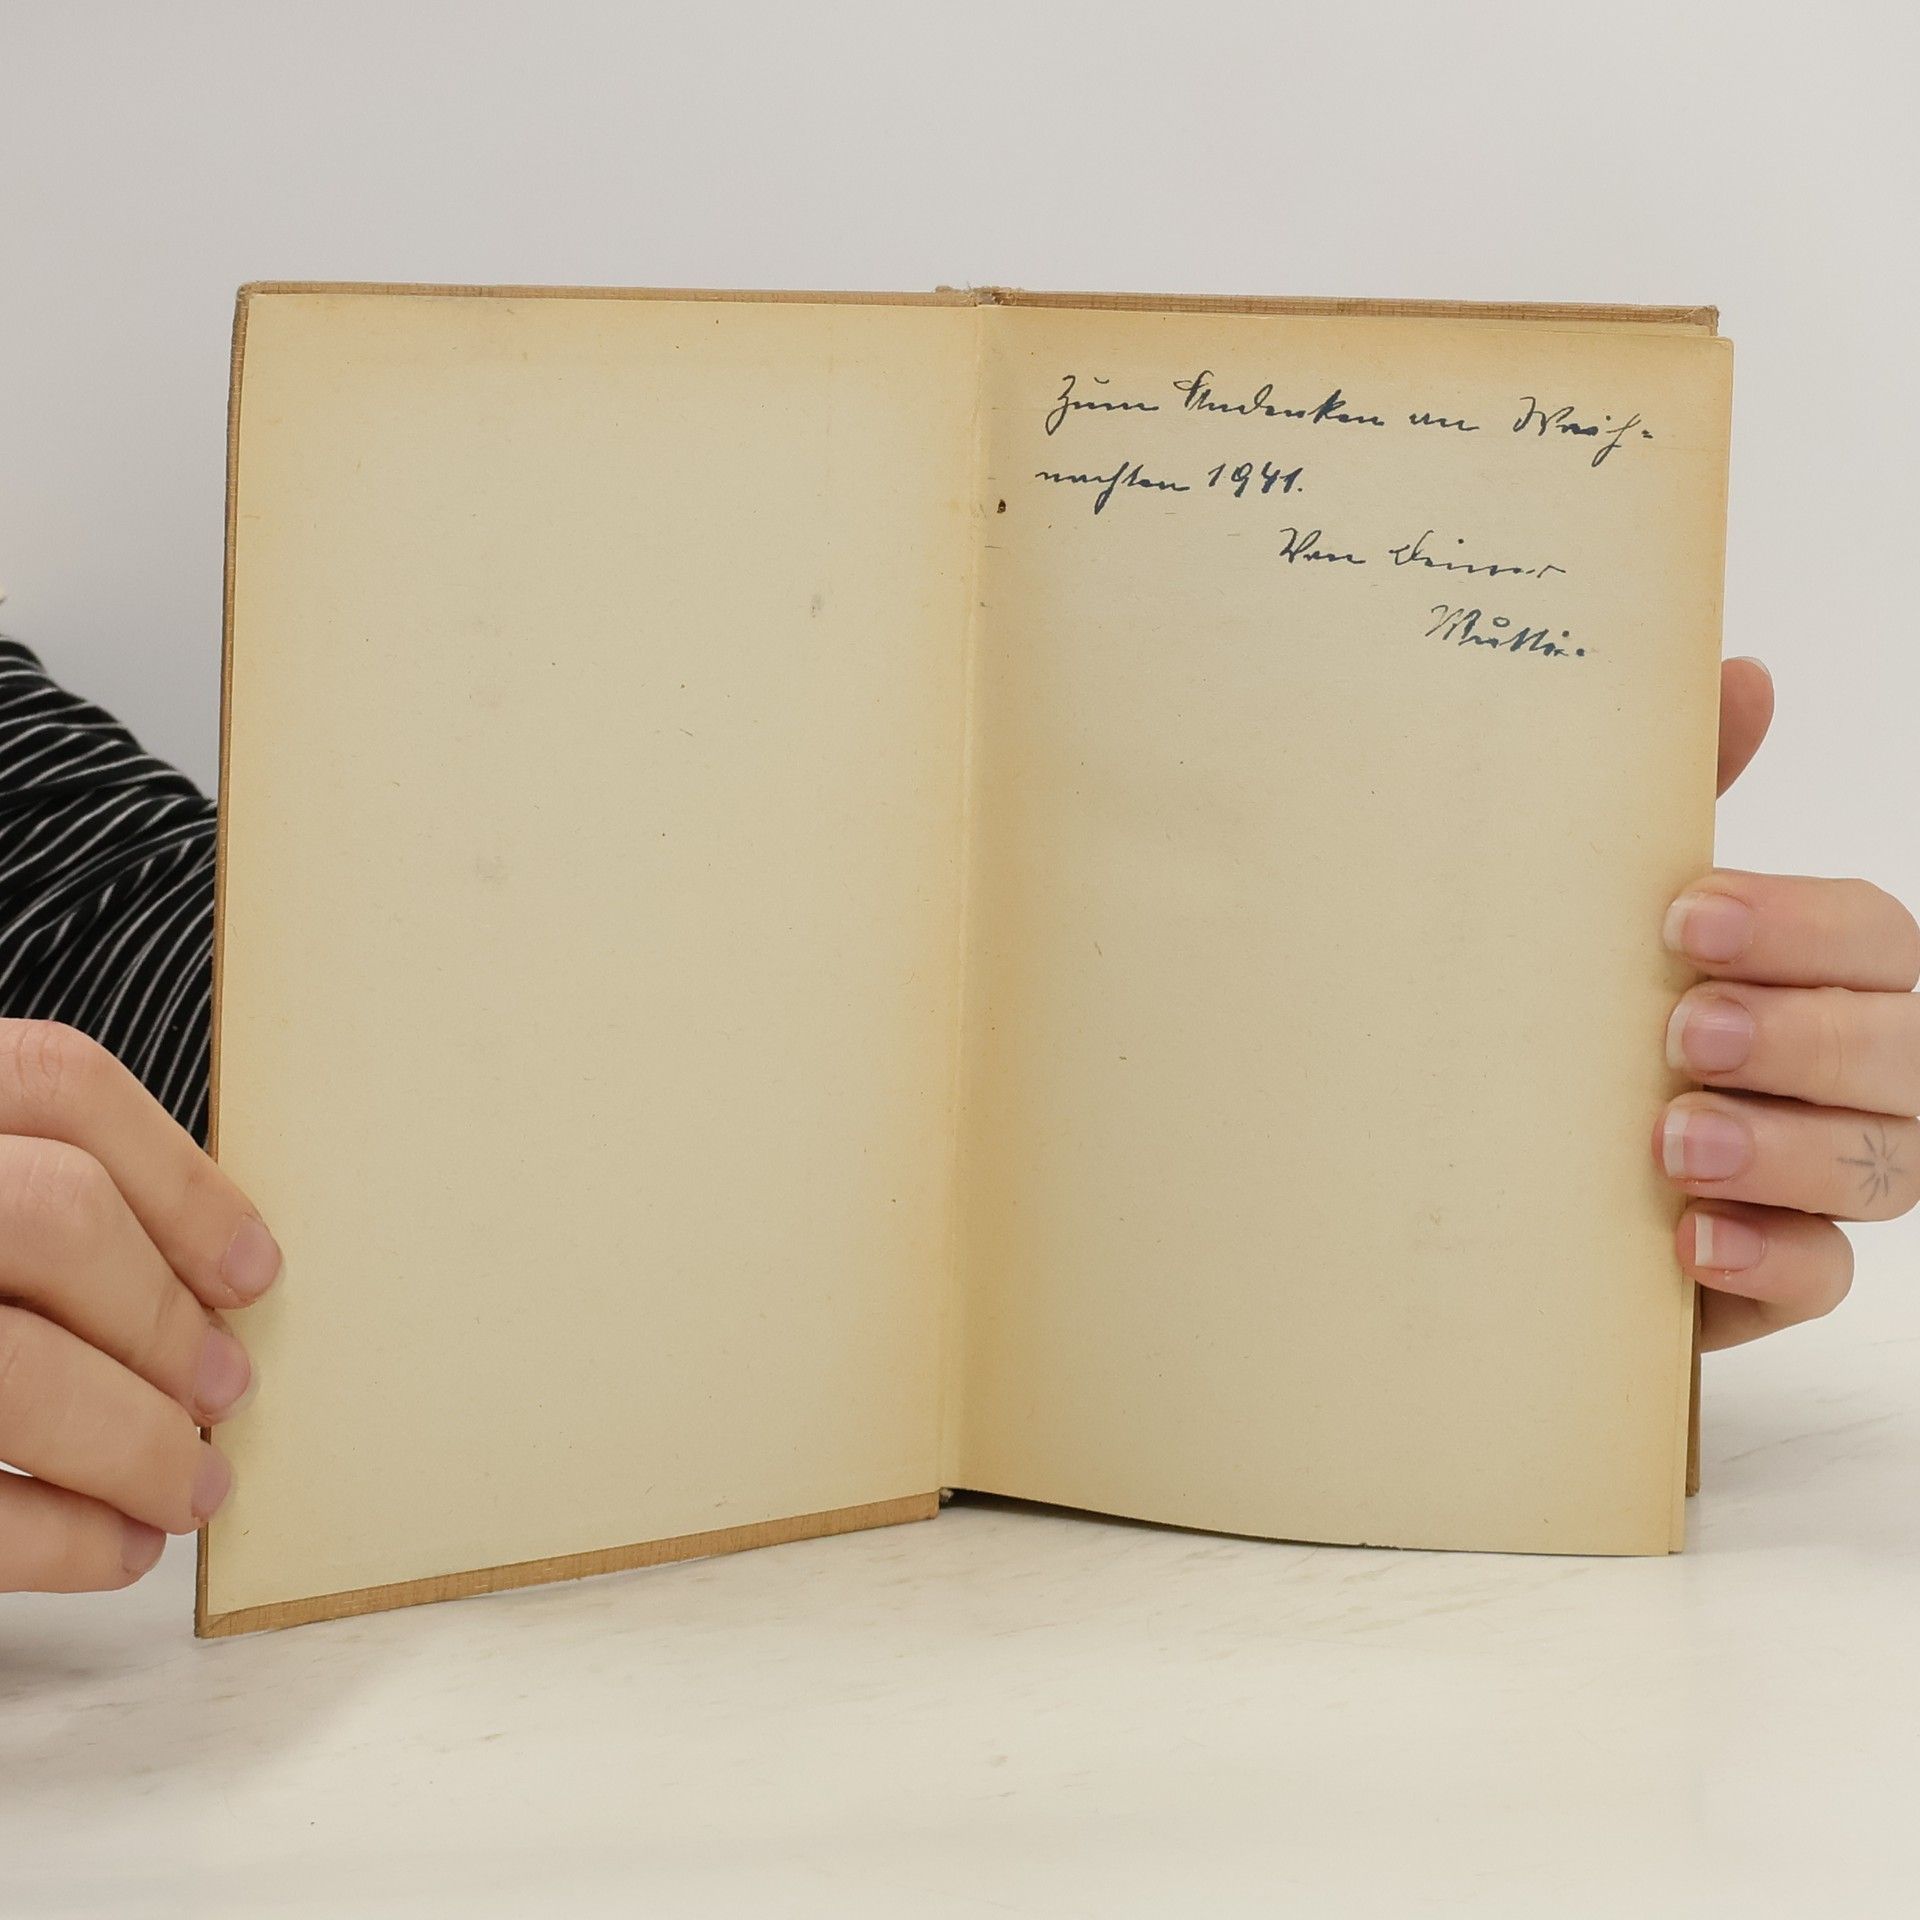 Zum Andenken an Weih=
nachten 1941.
Von Deiner
Mutti.